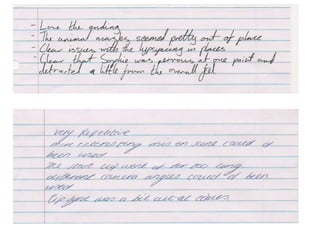 - Love the ending
- The animal masks seemed pretty out of place
- Clear issues with the lipsyncing in places
- Clear that Sophie was nervous at one point and
detracted a little from the overall feel
very Repetative
more interesting mis en scene could of
been used
the start
different camera angles could of been
used
Lip sync was a bit out at times.